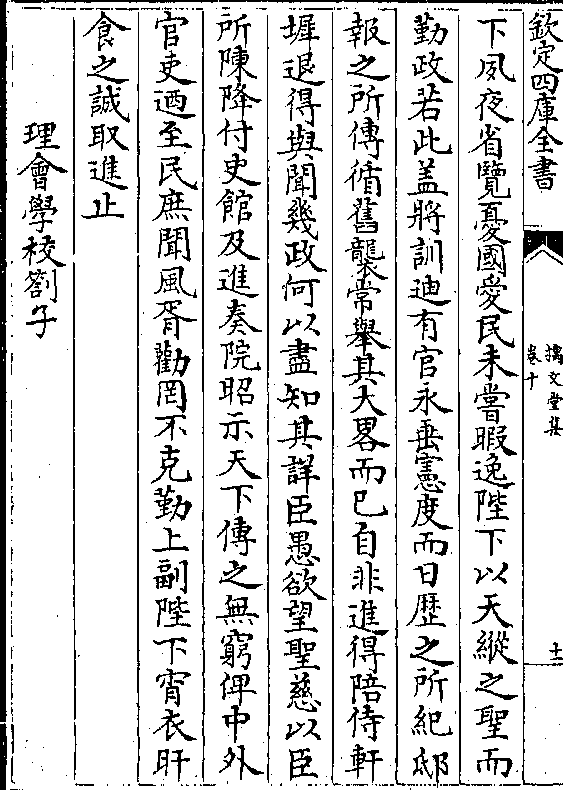 欽定四庫全書
摛文堂集
卷十
十一
下夙夜省覽憂國愛民未嘗暇逸陛下以天縱之聖而
勤政若此盖將訓迪有官永垂憲度而日歷之所紀邸
報之所傳循舊襲常舉其大畧而已自非進得陪侍軒
墀退得與聞幾政何以盡知其詳臣愚欲望聖慈以臣
所陳降付史館及進奏院昭示天下傳之無窮俾中外
官吏迺至民庶聞風胥勸罔不克勤上副陛下宵衣旰
食之誠取進止
理會學校劄子